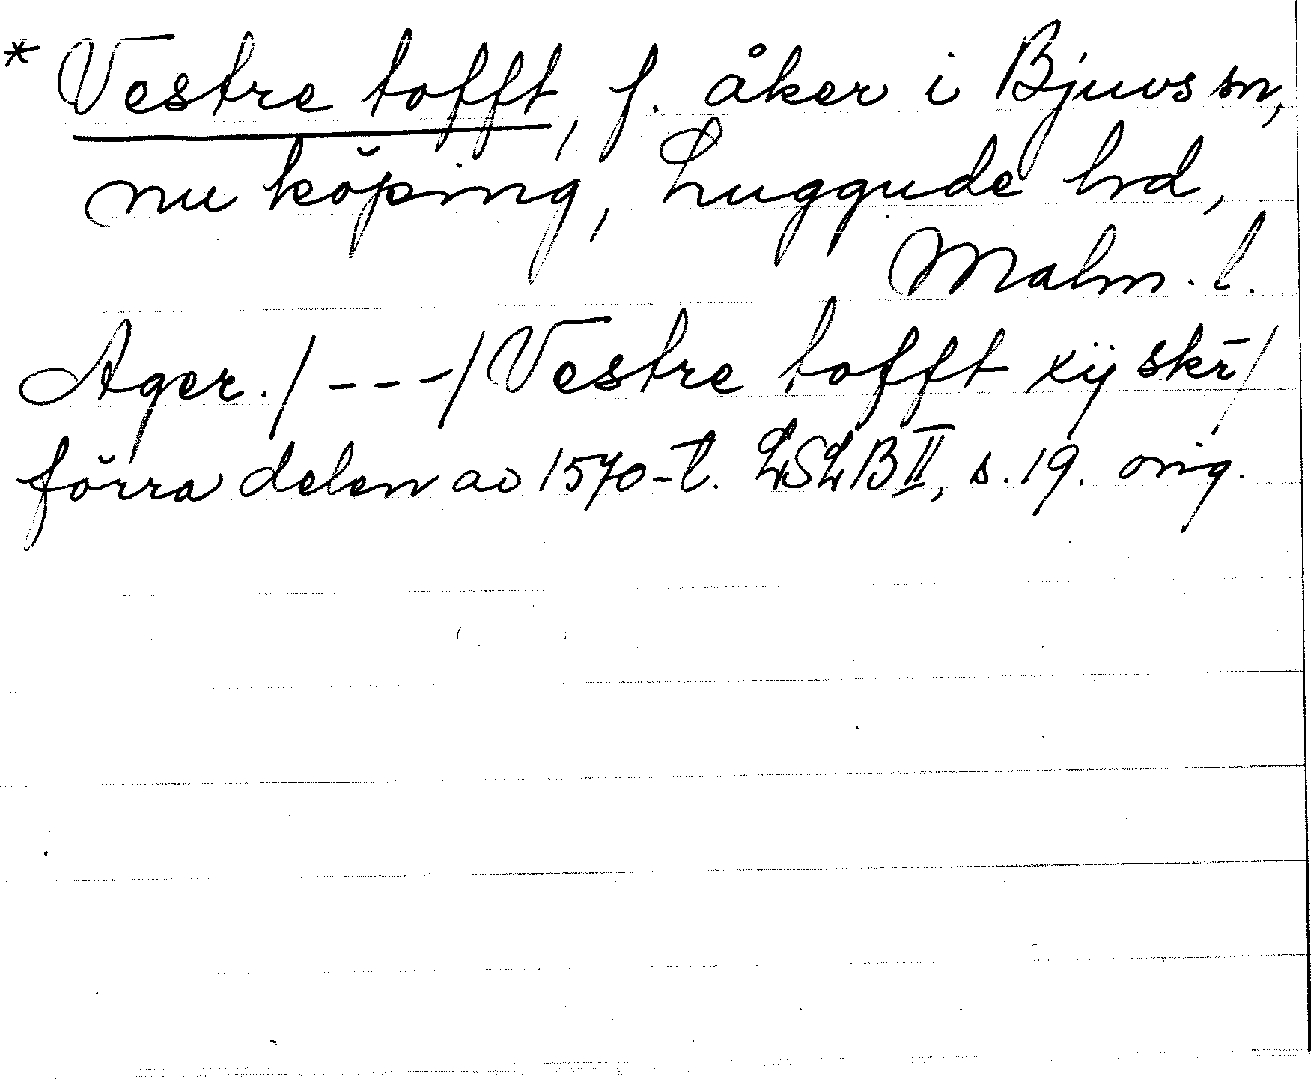 * Vestre tofft, f. åker i Bjuvs sn,
nu köping, Luggude hd,
Malm. l.
Ager. / - - - / Vestre tofft xij skr̄ /
förra delen av 1570-t. LSLB II, s. 19. orig.